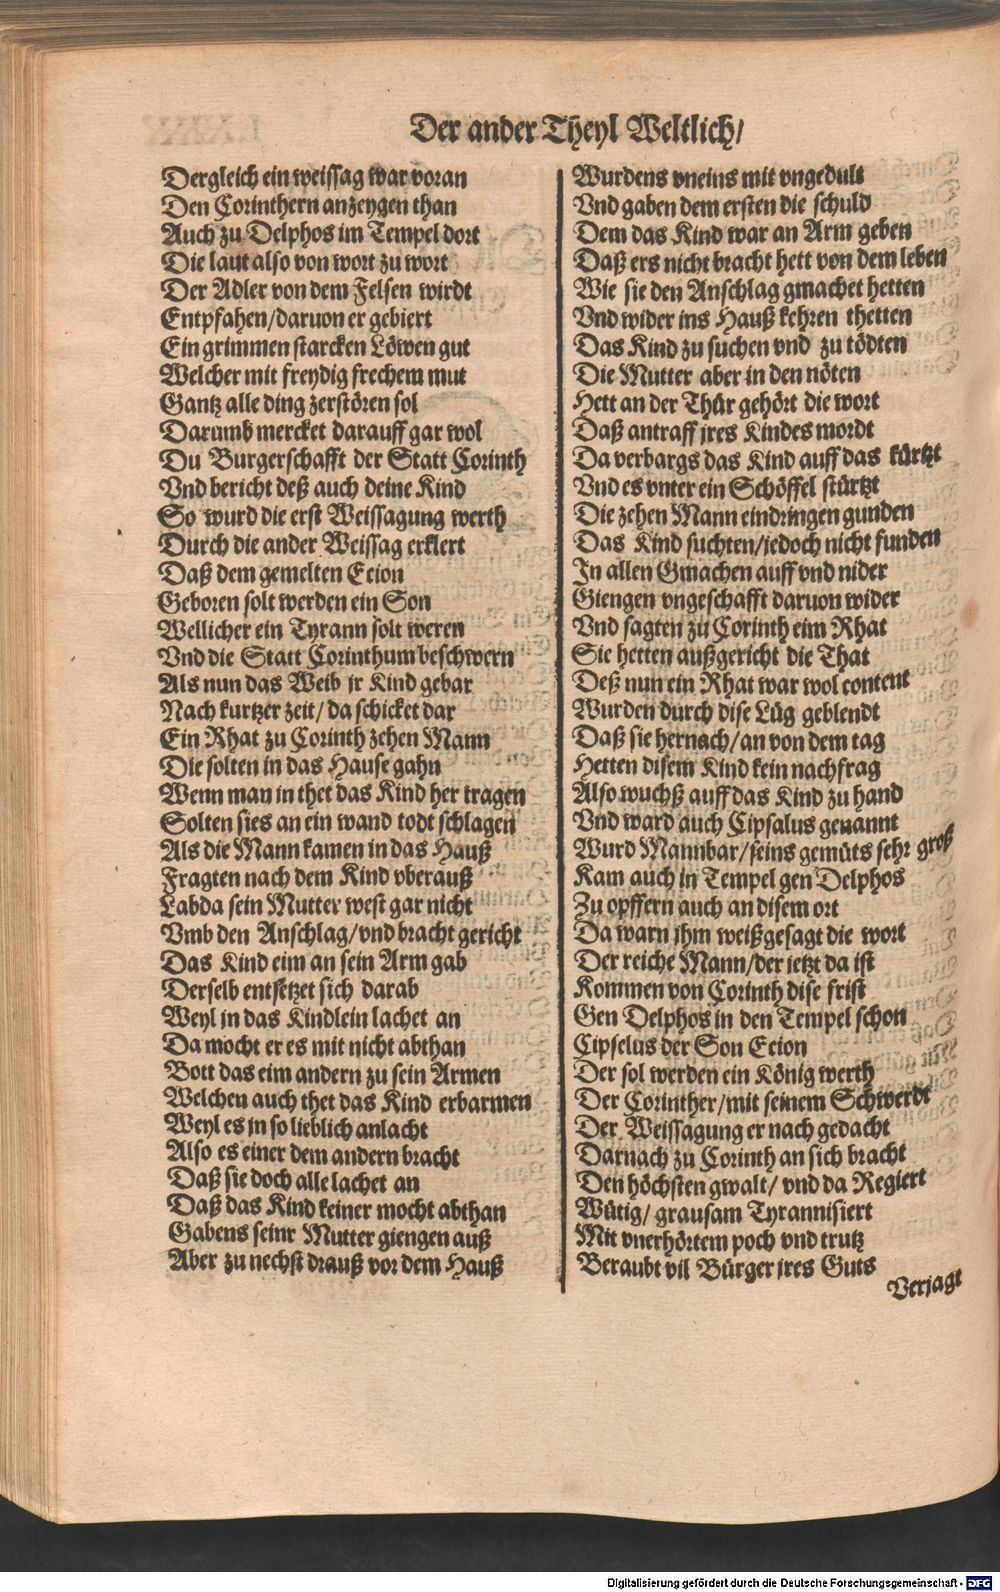 Der ander Theyl Weltlich/
Dergleich ein weissag war voran
Den Corinthern anzeygen than
Auch zu Delphos im Tempel dort
Die laut also von wort zu wort
Der Adler von dem Felsen wirdt
Entpfahen/daruon er gebiert
Ein grimmen starcken Löwen gut
Welcher mit freydig frechem mut
Gantz alle ding zerstören sol
Darumb mercket darauff gar wol
Du Burgerschafft der Statt Corinth
Vnd bericht deß auch deine Kind
So wurd die erst Weissagung werth
Durch die ander Weissag erklert
Daß dem gemelten Ecion
Geboren solt werden ein Son
Wellicher ein Tyrann solt weren
Vnd die Statt Corinthum beschwern
Als nun das Weib jr Kind gebar
Nach kurtzer zeit/ da schicket dar
Ein Rhat zu Corinth zehen Mann
Die solten in das Hause gahn
Wenn man in thet das Kind her tragen
Solten sies an ein wand todt schlagen
Als die Mann kamen in das Hauß
Fragten nach dem Kind vberauß
Labda sein Mutter west gar nicht
Vmb den Anschlag/vnd bracht gericht
Das Kind eim an sein Arm gab
Derselb entsetzet sich darab
Weyl jn das Kindlein lachet an
Da mocht er es mit nicht abthan
Bott das eim andern zu sein Armen
Welchen auch thet das Kind erbarmen
Weyl es jn so lieblich anlacht
Also es einer dem andern bracht
Daß sie doch alle lachet an
Daß das Kind keiner mocht abthan
Gabens seinr Mutter giengen auß
Aber zu nechst drauß vor dem Hauß
Wurdens vneins mit vngedult
Vnd gaben dem ersten die schuld
Dem das Kind war an Arm geben
Daß ers nicht bracht hett von dem leben
Wie sie den Anschlag gmachet hetten
Vnd wider ins Hauß kehren thetten
Das Kind zu suchen vnd zu tödten
Die Mutter aber in den nöten
Hett an der Thür gehört die wort
Daß antraff jres Kindes mordt
Da verbargs das Kind auff das kürtzt
Vnd es vnter ein Schöffel stürtzt
Die zehen Mann eindringen gunden
Das Kind suchten/jedoch nicht funden
In allen Gmachen auff vnd nider
Giengen vngeschafft daruon wider
Vnd sagten zu Corinth eim Rhat
Sie hetten außgericht die That
Deß nun ein Rhat war wol content
Wurden durch dise Lüg geblendt
Daß sie hernach/an von dem tag
Hetten disem Kind kein nachfrag
Also wuchß auff das Kind zu hand
Vnd ward auch Cipsalus genannt
Wurd Mannbar/seins gemüts sehr groß
Kam auch in Tempel gen Delphos
Zu opffern auch an disem ort
Da warn jhm weißgesagt die wort
Der reiche Mann/der jetzt da ist
Kommen von Corinth dise frist
Gen Delphos in den Tempel schon
Cipselus der Son Ecion
Der sol werden ein König werth
Der Corinther/mit seinem Schwerdt
Der Weissagung er nach gedacht
Darnach zu Corinth an sich bracht
Den höchsten gwalt/ vnd da Regiert
Wütig/ grausam Tyrannisiert
Mit vnerhörtem poch vnd trutz
Beraubt vil Bürger jres Guts
Verjagt
Digitalisierung gefördert durch die Deutsche Forschungsgemeinschaft - DFG